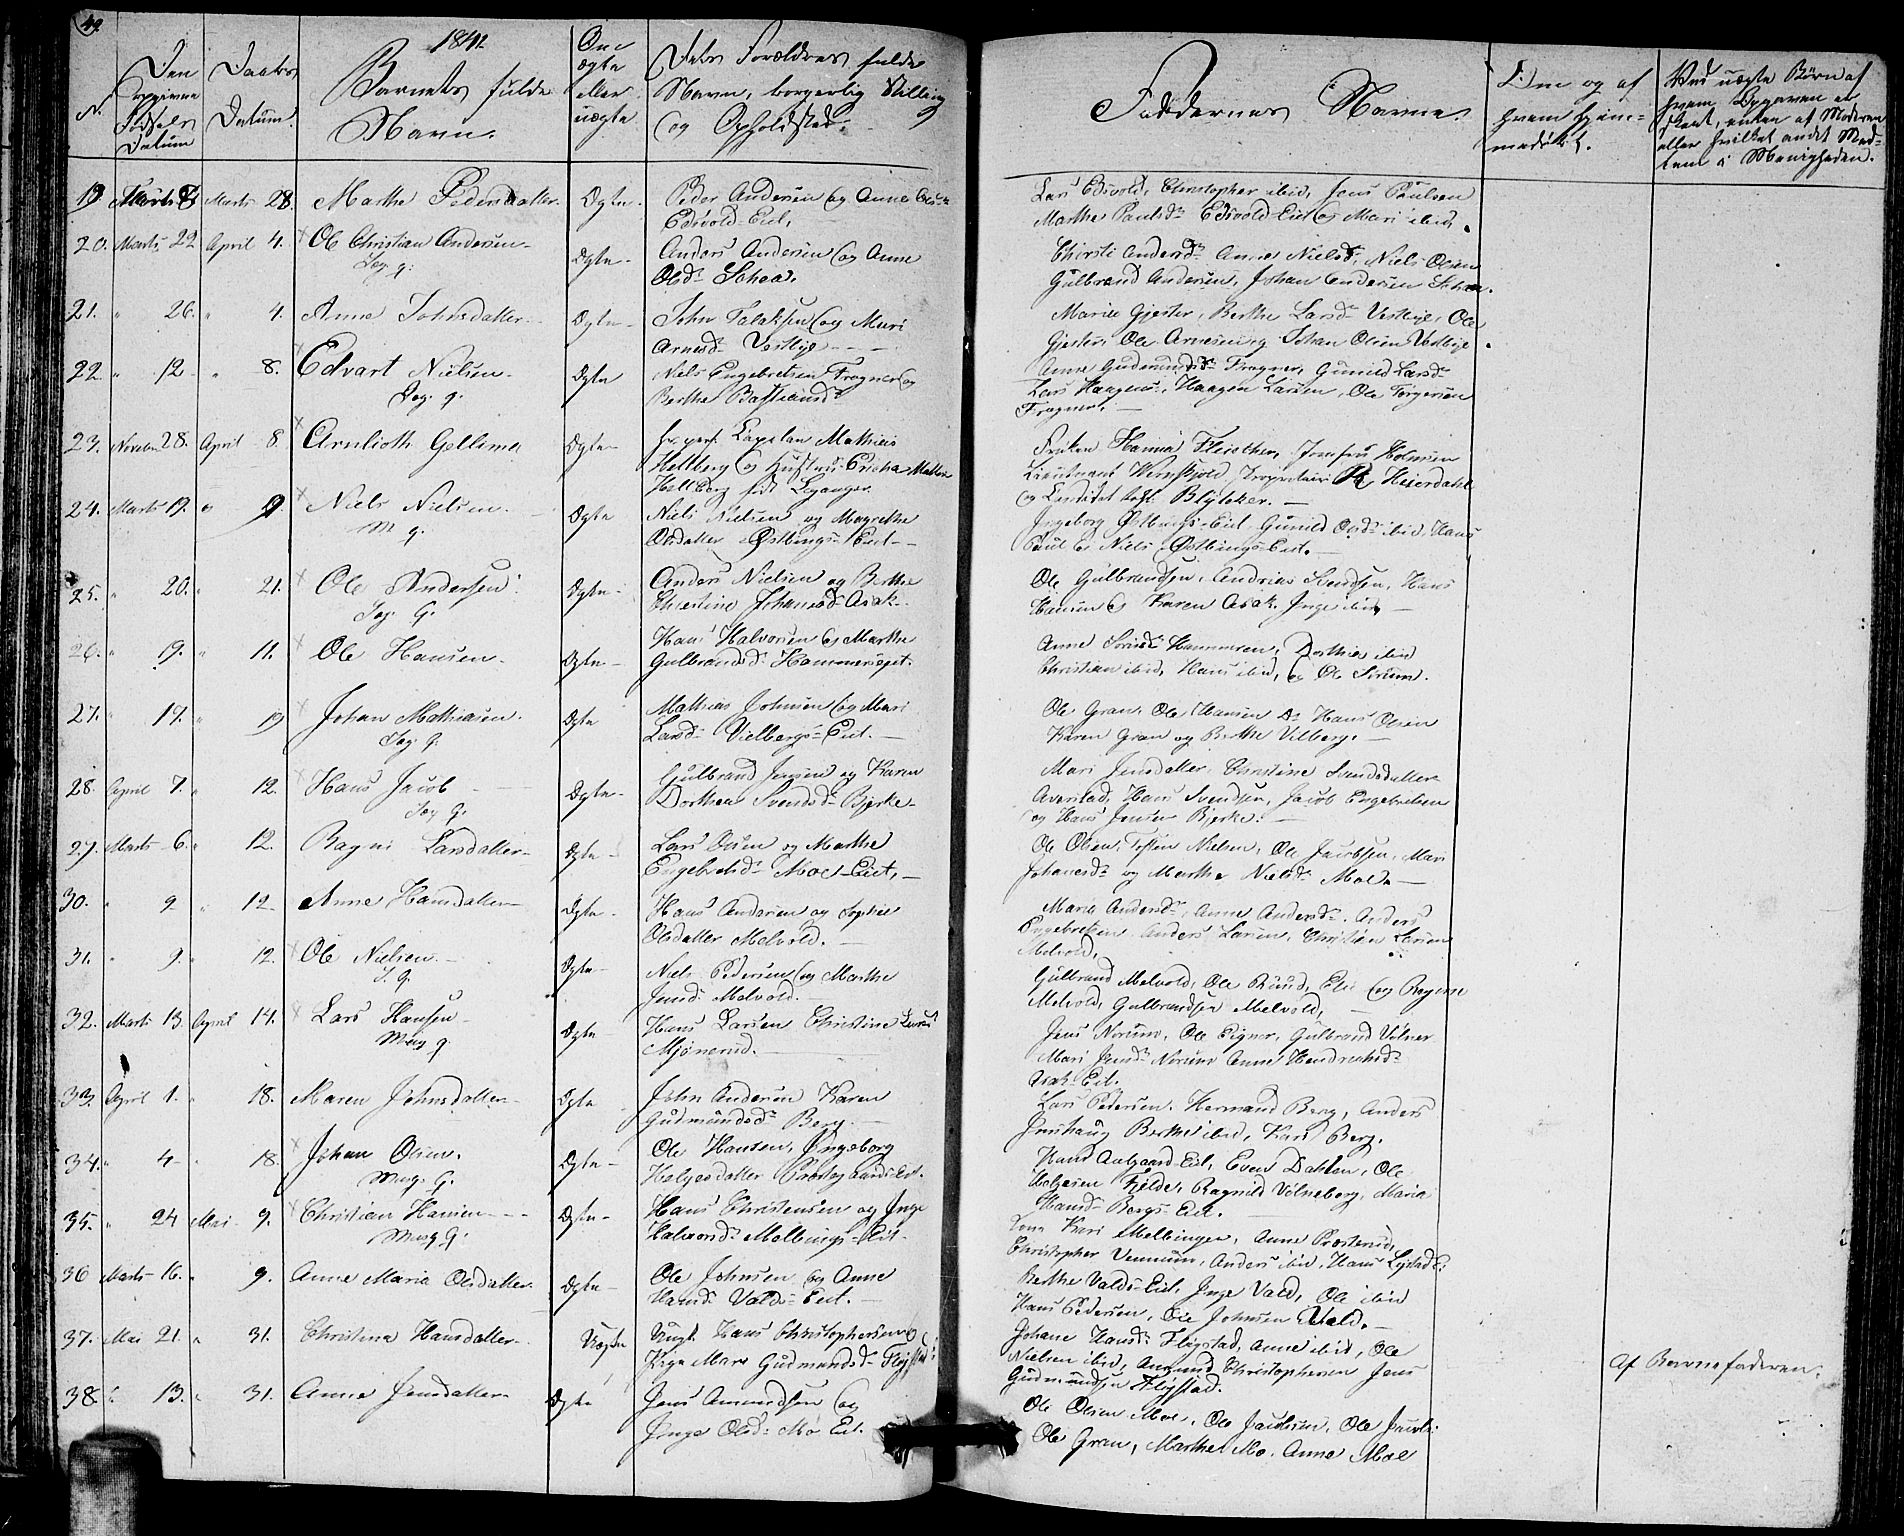 49.
1841
N.
Den opgivne Fødsels Datum
Daabs Datum.
Barnets fulde Navn.
Om ægte eller uægte.
Dets Forældres fulde Navn, borgerlig Stilling og Opholdsted.
Faddernes Navne.
Om og af hvem hjemmedøbt.
Ved uægte Børn af hvem Opgaven er skeet, enten af Moderen eller hvilket andet Medlem i Menigheden.
19. Marts Marts 28. Marthe Pedersdatter. Ægte. Peder Andersen og Anne
Edsvold Eiet.
Lars Edsvold, Christopher ibid, Jens Paulsen
Marthe Paulsd. Edsvold Eiet og Mari ibid.
20. Marts 22 April 4. Ole Christian Andersen
Ægte. Anders Andersen og Anne
Olsd.
Chirsti Andersd. Anne Nielsd. Niels Olsen
Gulbrand Andersen, Johan Andersen
21. " 26. " 4. Anne Johnsdatter. Ægte John Falaksen og Mari
Arnesd. Vestbye
Marie Gjester, Berthe Larsd. Vestbye, Ole
Gjester, Ole Arnesen og Johan Olsen Vestbye.
22 " 12 " 8. Edvart Nielsen. Ægte Niels Engebretsen Frogner og
Berthe Bastiansd.
Anne Gudmundsd. Frogner, Gunild Larsd.
Lars Haagens. Haagen Larsen, Ole Torgersen
Frogner.
23. Novem 28. April 8. Arnlioth Gellima Ægte Hr. pers. Capelan Mathias
Hellberg og Hustrue Ericha
Hellberg født Leganger.
Frøken Hanna Fleischer, Jomfru Holmsen
Lieutenant Wernskjold, Proprietair Heierdahl
og Blyteker.
24. Marts 19. " 9. Niels Nielsen. Ægte Niels Nielsen og Magrethe
Olsdatter Østbings-Eiet
Ingeborg Østbings-Eiet Gunild Olsd. ibid, Hans
Paul og Niels Østbings-Eiet.
25. " 20. " 21. Ole Andersen Ægte. Anders Nielsen og Berthe
Christine Johannsd. Asak.
Ole Gulbrandsen, Andreas Svendsen, Hans
Hansen og Karen Asak. Inge ibid.
26. " 9. " 11. Ole Hansen. Ægte Hans Halvorsen og Marthe
Gulbrandsd. Hammerseget.
Anne Hammeren, Dorthea ibid
Christian ibid, Hans ibid, og Ole Sørum.
27. " 17. " 19 Johan Mathiasen. Ægte Mathias Johnsen og Mari
Larsd. Vielbergs-Eiet.
Ole Gran, Ole Hansen Do Hans Olsen
Karen Gran og Berthe Vilberg.
28. April 7. " 12. Hans Jacob Ægte. Gulbrand Jensen og Karen
Dorthea Svendsd. Bjerke
Mari Jensdatter, Christine Svendsdatter
Averstad, Hans Svendsen, Jacob Engebretsen
og Hans Jensen Bjerke.
29. Marts 6. " 12. Ragni Larsdatter Ægte Lars Olsen og Marthe
Engebretsd. Moe-Eiet.
Ole Olsen, Tosten Nielsen, Ole Jacobsen, Mari
Johannesd. og Marthe Nielsd. Moe.
30. " 9 " 12 Anne Hansdatter Ægte. Hans Andersen og Sophie
Olsdatter Melvold.
Marie Andersd. Anne Andersd. Anders
Engebretsen Anders Larsen, Christian Larsen
Melvold.
31. " 9. " 12. Ole Nielsen. Ægte Niels Pedersen og Marthe
Jensd. Melvold.
Gulbrand Melvold, Ole Elie og Ragine
Melvold, Gulbrandsen Melvold,
32. Marts 13. April 14. Lars Hansen Ægte Hans Larsen Christine Larsd.
Mjønerud.
Jens Norum, Ole Eigner, Gulbrand Volner
Mari Jensd. Norum Anne Hendrichsd.
Asak-Eiet.
33. April 1. " 18. Maren Johnsdatter Ægte John Andersen Karen
Gudmundsd. Berg.
Lars Pedersen. Hermand Berg, Anders
Berthe ibid, Kari Berg.
34. " 4 " 18. Johan Olsen. Ægte Ole Hansen, Ingeborg
Helgesdatter
Hans Eiet, Even Dahlen, Ole
Helgesen Fjelde, Ragnild Volneberg, Maria
Hansd. Bergs-Eiet.
35. " 24 Mai 9. Christian Hansen Ægte Hans Christensen og Inge
Halvorsd. Melbings-Eiet.
Kari Melbingen, Anne
Christopher Vennum, Anders ibid, Hans
36 Marts 16. " 9. Anne Maria Olsdatter. Ægte Ole Johnsen og Anne
Hansd. Valds-Eiet.
Berthe Valds-Eiet, Inge Vald, Ole ibid
Hans Pedersen, Ole Johnsen Vald.
37. Mai 21. " 31. Christina Hansdatter. Uægte Ungk. Hans Christophersen og
Pige Mari Gudmundsd. Flogstad
Johane Hansd. Flogstad, Anne ibid, Ole
Nielsen ibid, Amund Christophersen Jens
Gudmundsen Flogstad.
Af Barnefaderen.
38. " 13. " 31. Anne Jensdatter Ægte Jens Amundsen og
Inge Olsd. Mo Eiet.
Ole Olsen Moe, Ole Jacobsen, Ole
Ole Gran, Marthe Mo. Anne Moe